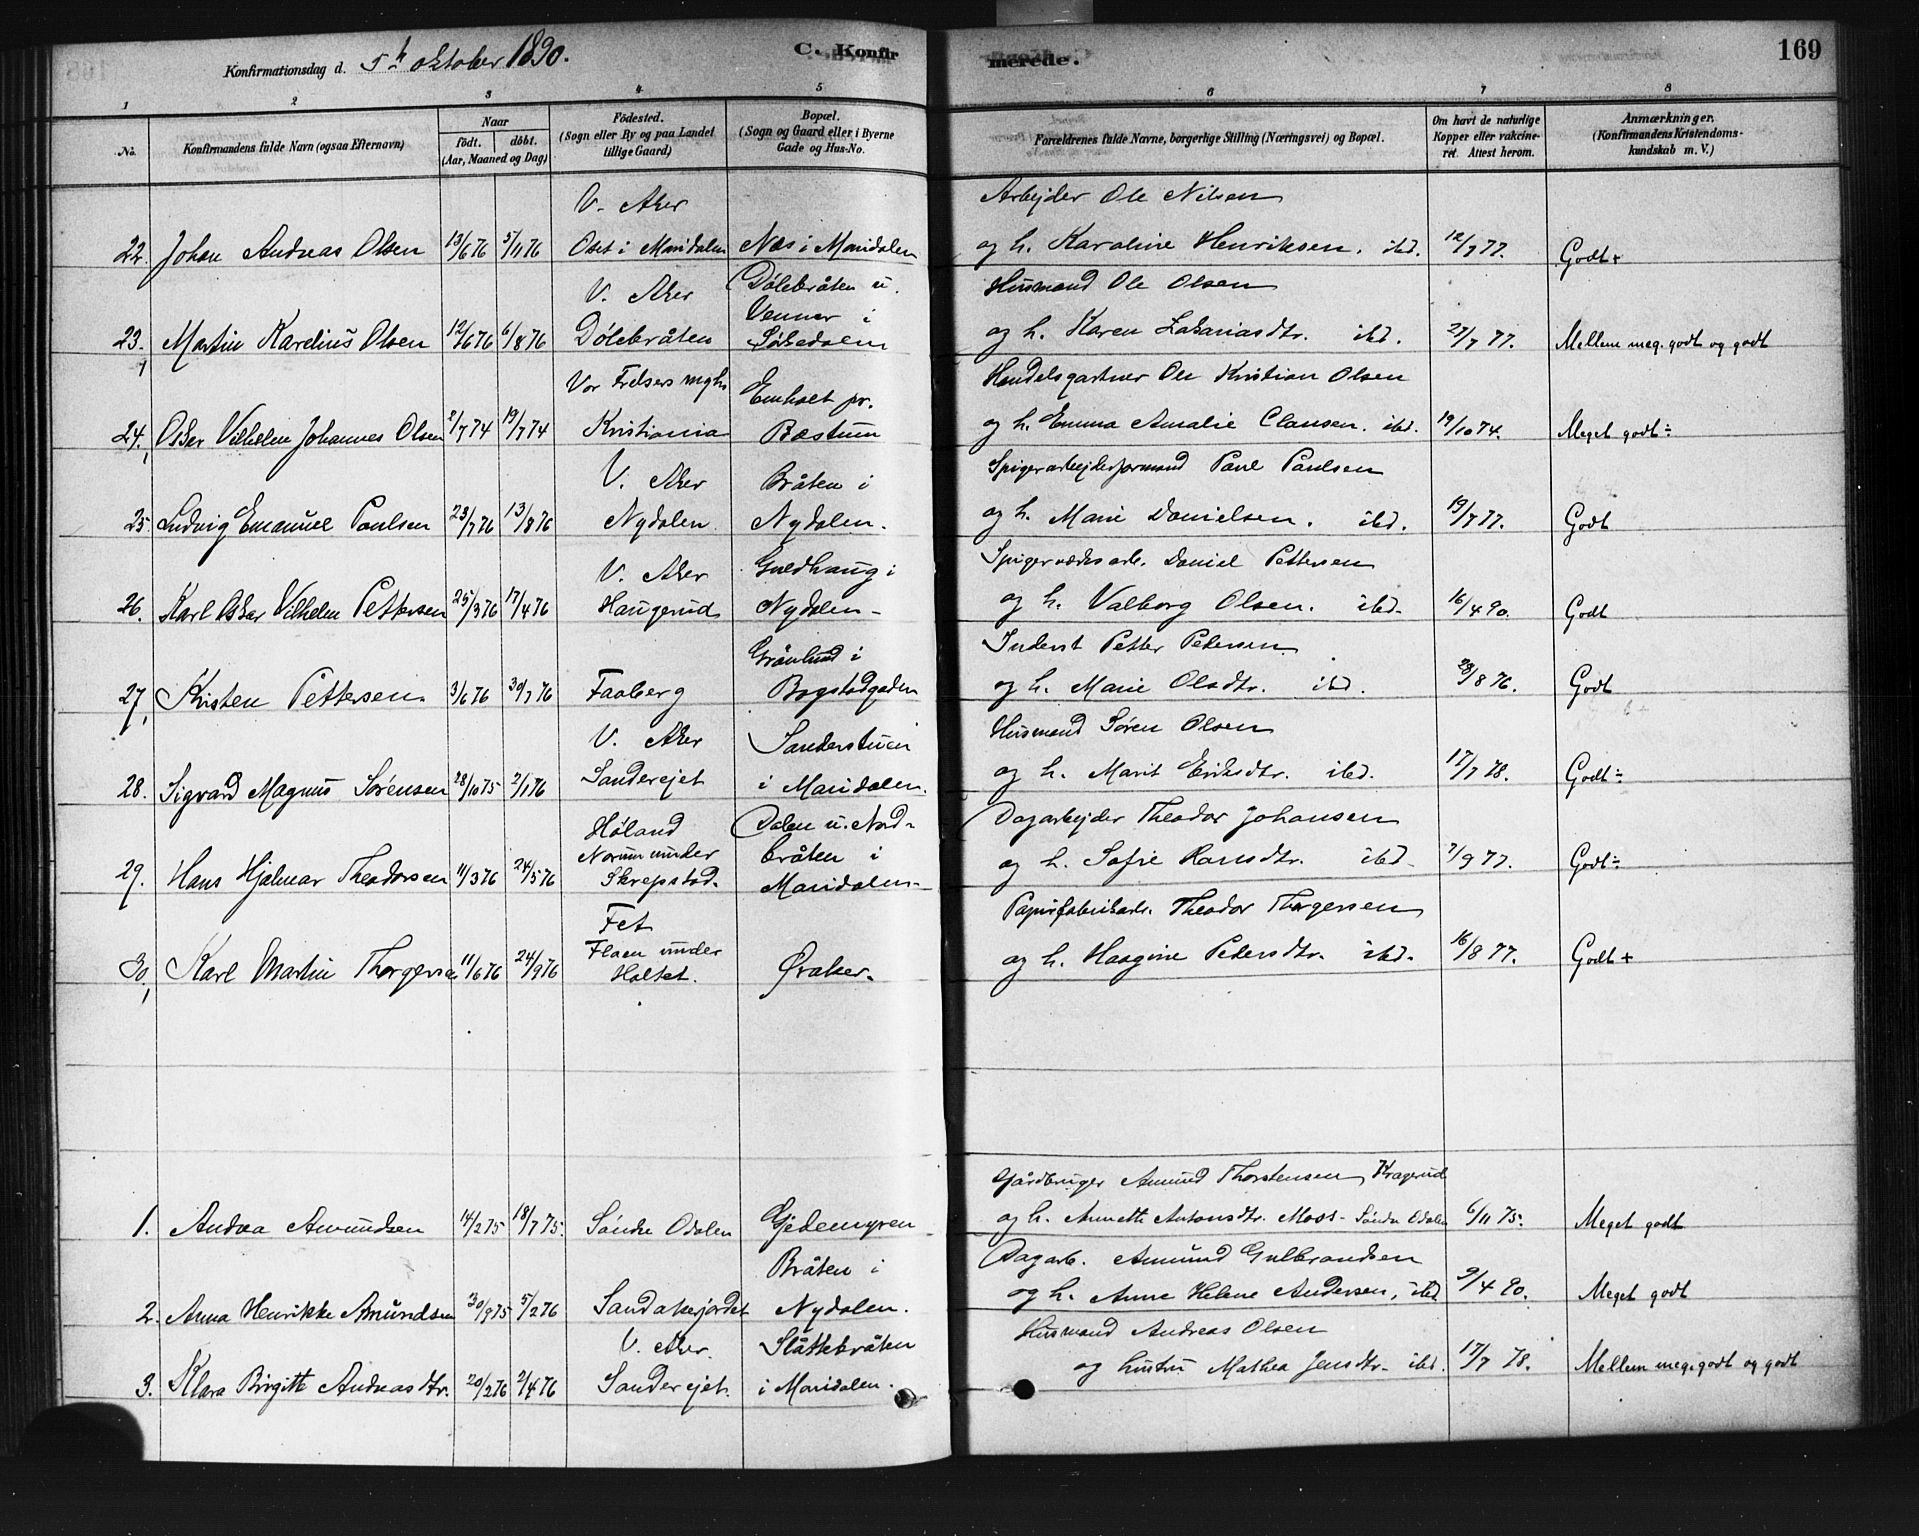 Konfirmationsdag d. 5te oktober 1890.
C. Konfir
merede.
169
1
2
3
4
5
6
7
8
No.
Konfirmandens fulde Navn (ogsaa Efternavn)
Naar
födt.
döbt.
(Aar, Maaned og Dag)
Födested.
(Sogn eller By og paa Landet
tillige Gaard)
Bopæl.
(Sogn og Gaard eller i Byerne
Gade og Hus-No.
Forældrenes fulde Navne, borgerlige Stilling (Næringsvei) og Bopæl.
Om havt de naturlige
Kopper eller vakcine-
ret. Attest herom.
Anmærkninger.
(Konfirmandens Kristendoms-
kundskab m. V.)
V. Aker
Arbejder Ole Nilsen
22. Johan Andreas Olsen 13/6 76 5/11 76 Oset i Maridalen Næs i Maridalen og h. Karoline Henriksen. ibd. 12/7 77. Godt+
V. Aker Dölebråten u. Husmand Ole Olsen
Venner i
23. Martin Karelius Olsen 12/6 76 6/8 76 Dölebråten Sörkedalen og h. Karen Zakariasdtr. ibd. 27/7 77. Mellem meg. godt og godt
Vor Frelsers mgh. Emholt pr. Handelsgartner Ole Kristian Olsen
24. Osker Vilhelm Johannes Olsen 2/7 74 19/7 74 Kristiania Bæstum og h. Emma Amalie Clausen. ibd. 19/10 74. Meget godt÷
V. Aker Bråten i Spigerarbejderformand Paul Paulsen
25. Ludvig Emanuel Paulsen 23/7 76 13/8 76 Nydalen. Nydalen. og h. Marie Danielsen. ibd. 19/7 77. Godt
V. Aker Guldhaug i Spigerværksarb. Daniel Pettersen
26. Karl Osker Vilhelm Pettersen 25/3 76 17/4 76 Haugerud Nydalen- og h. Valborg Olsen. ibd- 16/4 90. Godt
Grönlund i Inderst Petter Pedersen
27, Kristen Pettersen. 3/6 76 30/7 76 Faaberg Bogstadgaden og h. Marie Olsdtr. ibd. 28/8 76. Godt
V. Aker Sanderstuen Husmand Sören Olsen
28. Sigvard Magnus Sörensen 28/10 75 2/1 76 Sanderejet i Maridalen. og h. Marit Eriksdtr. ibd. 17/7 78. Godt÷
Höland Dalen u. Nord- Dagarbejder Theodor Johansen
Norum under bråten i
29. Hans Hjalmar Theodorsen 11/3 76 24/5 76 Skrepstad. Maridalen- og h. Sofie Hansdtr. ibd- 7/9 77. Godt÷
Fet Papirfabrikarb. Theodor Thorgersen
Flaen under
30, Karl Martin Thorgersen 11/6 76 24/9 76 Holtet. Øraker- og h. Haagine Pedersdtr. ibd. 16/8 77. Godt+
Gårdbruger Amund Thorstensen, Kragerud
1. Andrea Amundsen 14/2 75 18/7 75. Söndre Odalen Gjedemyren og h. Annette Antonsdtr. Moss- Söndre Odalen 6/11 75. Meget godt
Bråten i Dagarb. Amund Gulbrandsen
2. Anna Henrikke Amundsen 30/9 75 5/2 76 Sandakejordet Nydalen. og h. Anne Helene Andersen, ibd 9/4 90. Meget godt
V. Aker. Slåttebråten Husmand Andreas Olsen
3. Klara Birgitte Andreasdtr. 20/2 76 2/4 76 Sanderejet. i Maridalen. og hustru Mathea Jensdtr- ibd. 17/7 78. Mellem meg. godt og godt